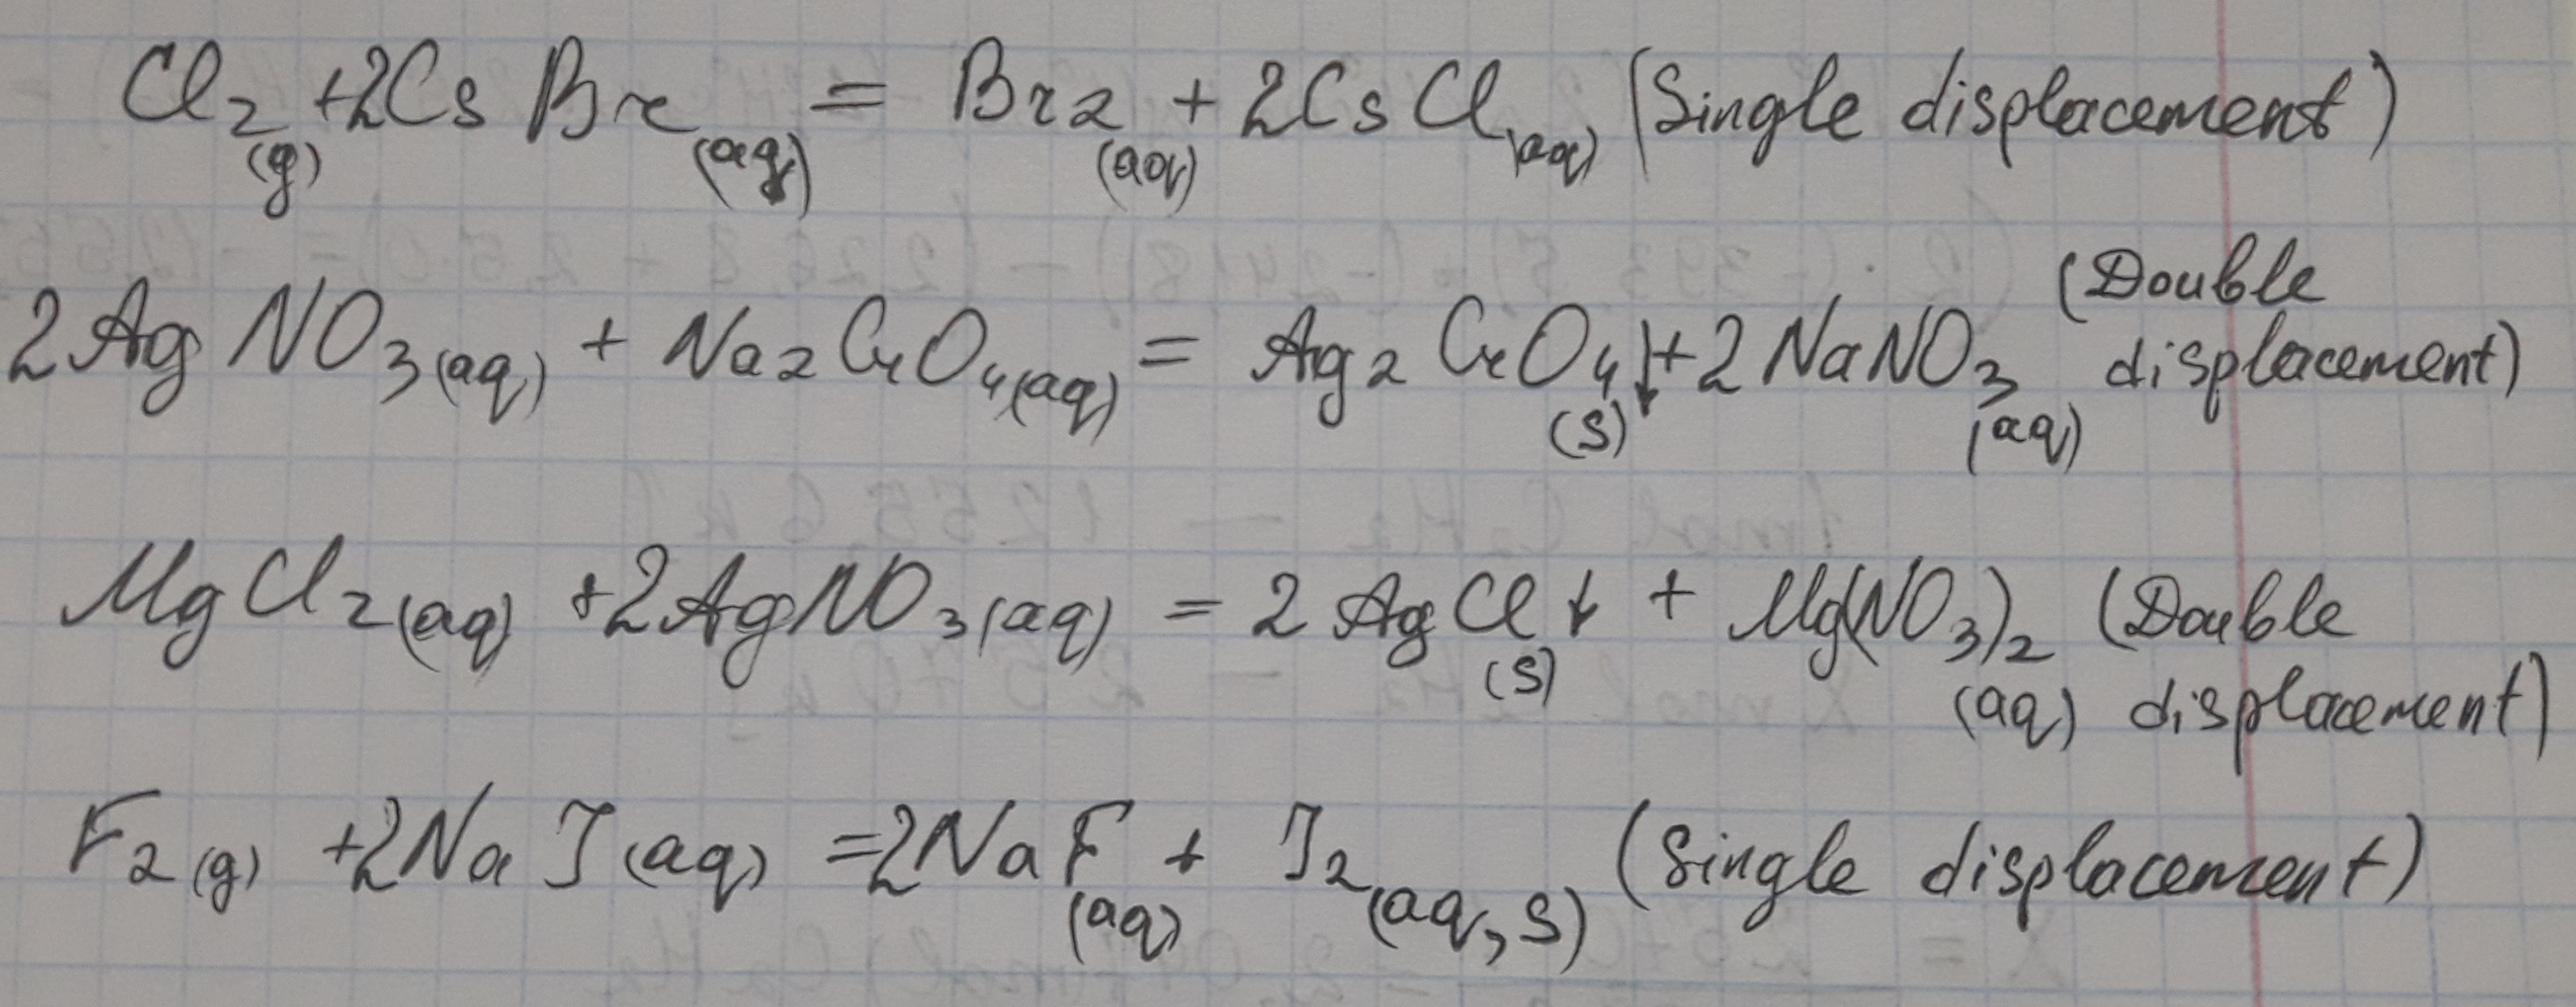 Cl2(g) + 2CsBr(aq) = Br2(aq) + 2CsCl(aq) (Single displacement)
2AgNO3(aq) + Na2CrO4(aq) = Ag2CrO4(s)↓ + 2NaNO3(aq) (Double displacement)
MgCl2(aq) + 2AgNO3(aq) = 2AgCl(s)↓ + Mg(NO3)2(aq) (Double displacement)
F2(g) + 2NaI(aq) = 2NaF(aq) + I2(aq,s) (Single displacement)